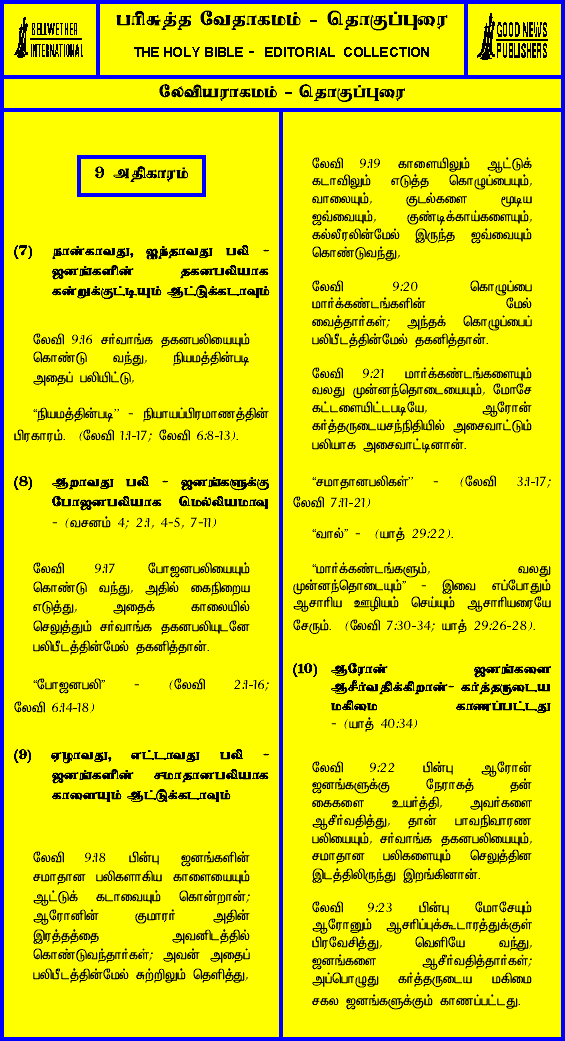 BELLWETHER
INTERNATIONAL
பரிசுத்த வேதாகமம் - தொகுப்புரை
THE HOLY BIBLE - EDITORIAL COLLECTION
GOOD NEWS
PUBLISHERS
லேவியராகமம் - தொகுப்புரை
9 அதிகாரம்
(7) நான்காவது, ஐந்தாவது பலி -
ஜனங்களின் தகனபலியாக
கன்றுக்குட்டியும் ஆட்டுக்கடாவும்
லேவி 9:16 சர்வாங்க தகனபலியையும்
கொண்டு வந்து, நியமத்தின்படி
அதைப் பலியிட்டு,
“நியமத்தின்படி” - நியாயப்பிரமாணத்தின்
பிரகாரம். (லேவி 1:1-17; லேவி 6:8-13).
(8) ஆறாவது பலி - ஜனங்களுக்கு
போஜனபலியாக மெல்லியமாவு
- (வசனம் 4; 2:1, 4-5, 7-11)
லேவி 9:17 போஜனபலியையும்
கொண்டு வந்து, அதில் கைநிறைய
எடுத்து, அதைக் காலையில்
செலுத்தும் சர்வாங்க தகனபலியுடனே
பலிபீடத்தின்மேல் தகனித்தான்.
“போஜனபலி” - (லேவி 2:1-16;
லேவி 6:14-18)
(9) ஏழாவது, எட்டாவது பலி -
ஜனங்களின் சமாதானபலியாக
காளையும் ஆட்டுக்கடாவும்
லேவி 9:18 பின்பு ஜனங்களின்
சமாதான பலிகளாகிய காளையையும்
ஆட்டுக் கடாவையும் கொன்றான்;
ஆரோனின் குமாரர் அதின்
இரத்தத்தை அவனிடத்தில்
கொண்டுவந்தார்கள்; அவன் அதைப்
பலிபீடத்தின்மேல் சுற்றிலும் தெளித்து,
லேவி 9:19 காளையிலும் ஆட்டுக்
கடாவிலும் எடுத்த கொழுப்பையும்,
வாலையும், குடல்களை மூடிய
ஜவ்வையும், குண்டிக்காய்களையும்,
கல்லீரலின்மேல் இருந்த ஜவ்வையும்
கொண்டுவந்து,
லேவி 9:20 கொழுப்பை
மார்க்கண்டங்களின் மேல்
வைத்தார்கள்; அந்தக் கொழுப்பைப்
பலிபீடத்தின்மேல் தகனித்தான்.
லேவி 9:21 மார்க்கண்டங்களையும்
வலது முன்னந்தொடையையும், மோசே
கட்டளையிட்டபடியே, ஆரோன்
கர்த்தருடையசந்நிதியில் அசைவாட்டும்
பலியாக அசைவாட்டினான்.
“சமாதானபலிகள்” - (லேவி 3:1-17;
லேவி 7:11-21)
“வால்” - (யாத் 29:22).
“மார்க்கண்டங்களும், வலது
முன்னந்தொடையும்” - இவை எப்போதும்
ஆசாரிய ஊழியம் செய்யும் ஆசாரியரையே
சேரும். (லேவி 7:30-34; யாத் 29:26-28).
(10) ஆரோன் ஜனங்களை
ஆசீர்வதிக்கிறான்- கர்த்தருடைய
மகிமை காணப்பட்டது
- (யாத் 40:34)
லேவி 9:22 பின்பு ஆரோன்
ஜனங்களுக்கு நேராகத் தன்
கைகளை உயர்த்தி, அவர்களை
ஆசீர்வதித்து, தான் பாவநிவாரண
பலியையும், சர்வாங்க தகனபலியையும்,
சமாதான பலிகளையும் செலுத்தின
இடத்திலிருந்து இறங்கினான்.
லேவி 9:23 பின்பு மோசேயும்
ஆரோனும் ஆசரிப்புக்கூடாரத்துக்குள்
பிரவேசித்து, வெளியே வந்து,
ஜனங்களை ஆசீர்வதித்தார்கள்;
அப்பொழுது கர்த்தருடைய மகிமை
சகல ஜனங்களுக்கும் காணப்பட்டது.